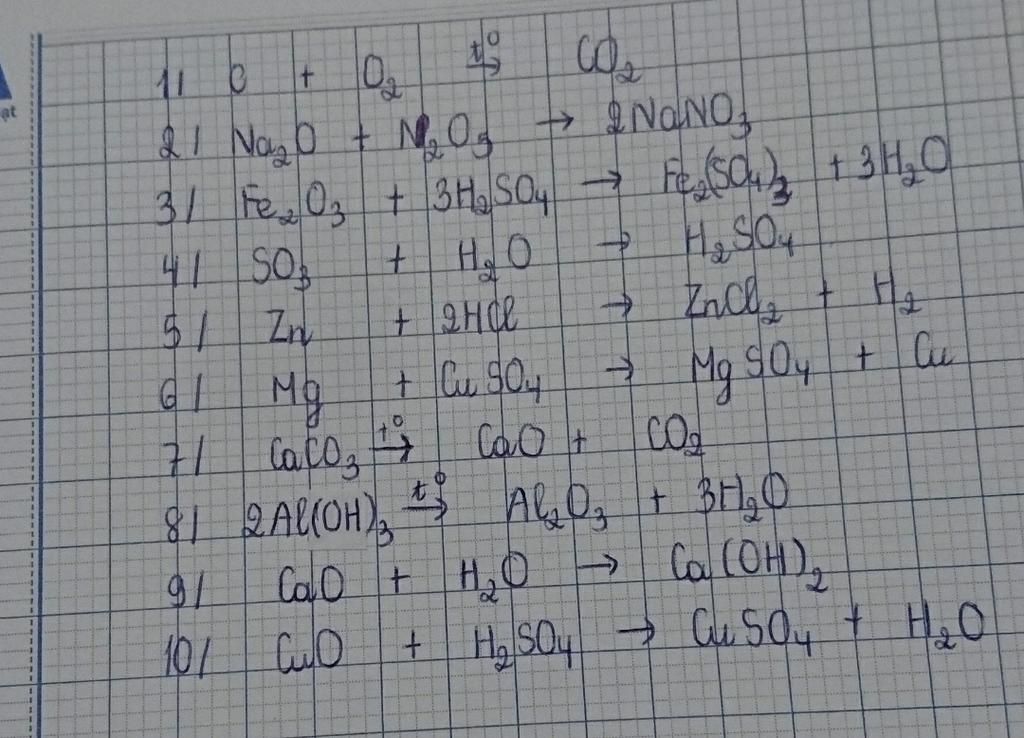 1/ C + O₂ t° → CO₂
2/ Na₂O + N₂O₅ → 2NaNO₃
3/ Fe₂O₃ + 3H₂SO₄ → Fe₂(SO₄)₃ + 3H₂O
4/ SO₃ + H₂O → H₂SO₄
5/ Zn + 2HCl → ZnCl₂ + H₂
6/ Mg + CuSO₄ → MgSO₄ + Cu
7/ CaCO₃ t° → CaO + CO₂
8/ 2Al(OH)₃ t° → Al₂O₃ + 3H₂O
9/ CaO + H₂O → Ca(OH)₂
10/ CuO + H₂SO₄ → CuSO₄ + H₂O